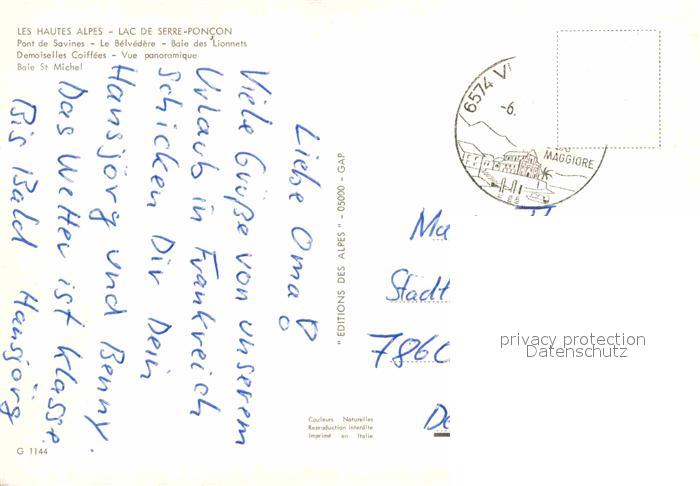 LES HAUTES ALPES – LAC DE SERRE-PONÇON
Pont de Savines – Le Bélvédère – Baie des Lionnets
Demoiselles Coiffées – Vue panoramique
Baie St Michel
Liebe Oma!
Viele Grüße von unserem
Urlaub in Frankreich
schicken Dir Dein
Hansjörg und Benny.
Das Wetter ist klasse.
Bis Bald Hansjörg
" EDITIONS DES ALPES " - 05000 - GAP
6574 V
-6.
MAGGIORE
Ma
Stadt
7860
De
privacy protection
Datenschutz
Couleurs Naturelles
Reproduction interdite
Imprimé en Italie
G 1144